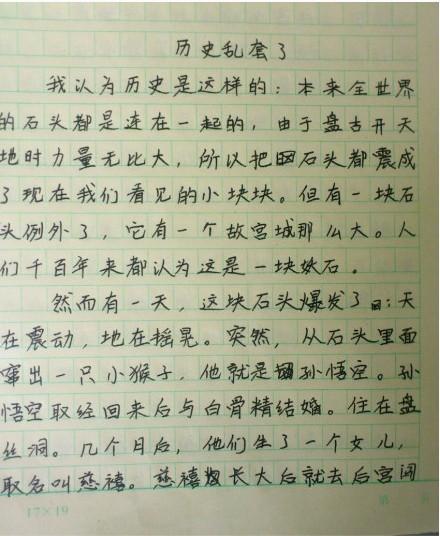 历史乱套了
我认为历史是这样的：本来全世界
的石头都是连在一起的，由于盘古开天
地时力量无比大，所以把石头都震成
了现在我们看见的小块块。但有一块石
头例外了，它有一个故宫城那么大。人
们千百年来都认为这是一块妖石。
然而有一天，这块石头爆发了：天
在震动，地在摇晃。突然，从石头里面
窜出一只小猴子，他就是孙悟空。孙
悟空取经回来后与白骨精结婚。住在盘
丝洞。几个月后，他们生了一个女儿，
取名叫慈禧。慈禧长大后就去后宫闯
17×19
第